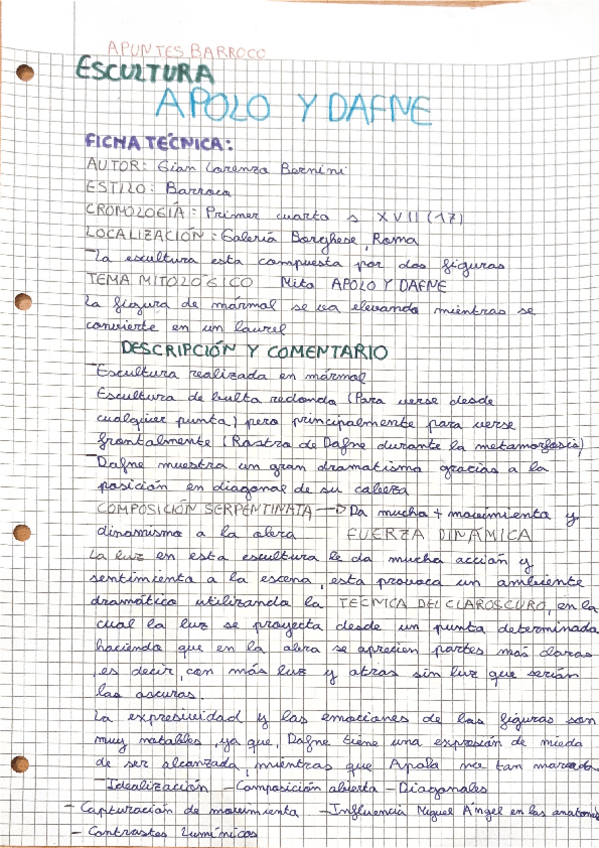 APUNTES BARROCO
ESCULTURA
APOLO Y DAFNE
FICHA TÉCNICA:
AUTOR: Gian Lorenzo Bernini
ESTILO: Barroco
CRONOLOGÍA: Primer cuarto s XVII (17)
LOCALIZACIÓN: Galería Borghese, Roma
-La escultura esta compuesta por dos figuras
TEMA MITOLOGICO Mito APOLO Y DAFNE
La figura de mármol se va elevando mientras se
convierte en un laurel
DESCRIPCIÓN Y COMENTARIO
-Escultura realizada en mármol
Escultura de bulto redondo (Para verse desde
cualquier punto) pero principalmente para verse
frontalmente (Rostro de Dafne durante la metamorfosis)
-Dafne muestra un gran dramatismo gracias a la
posición en diagonal de su cabeza
COMPOSICIÓN SERPENTINATA -> Da mucho + movimiento y
dinamismo a la obra FUERZA DINÁMICA
La luz en esta escultura le da mucha acción y
sentimiento a la escena, esto provoca un ambiente
dramático utilizando la TECNICA DEL CLAROSCURO, en la
cual la luz se proyecta desde un punto determinado
haciendo que en la obra se aprecien partes más claras
, es decir, con más luz y otras sin luz que serían
las oscuras.
La expresividad y las emociones de las figuras son
muy notables, ya que, Dafne tiene una expresión de miedo
de ser alcanzada, mientras que Apolo no tan marcado.
-Idealización -Composición abierta -Diagonales
-Capturación de movimiento -Influencia Miguel Ángel en las anatomías
-Contrastes Lumínicos